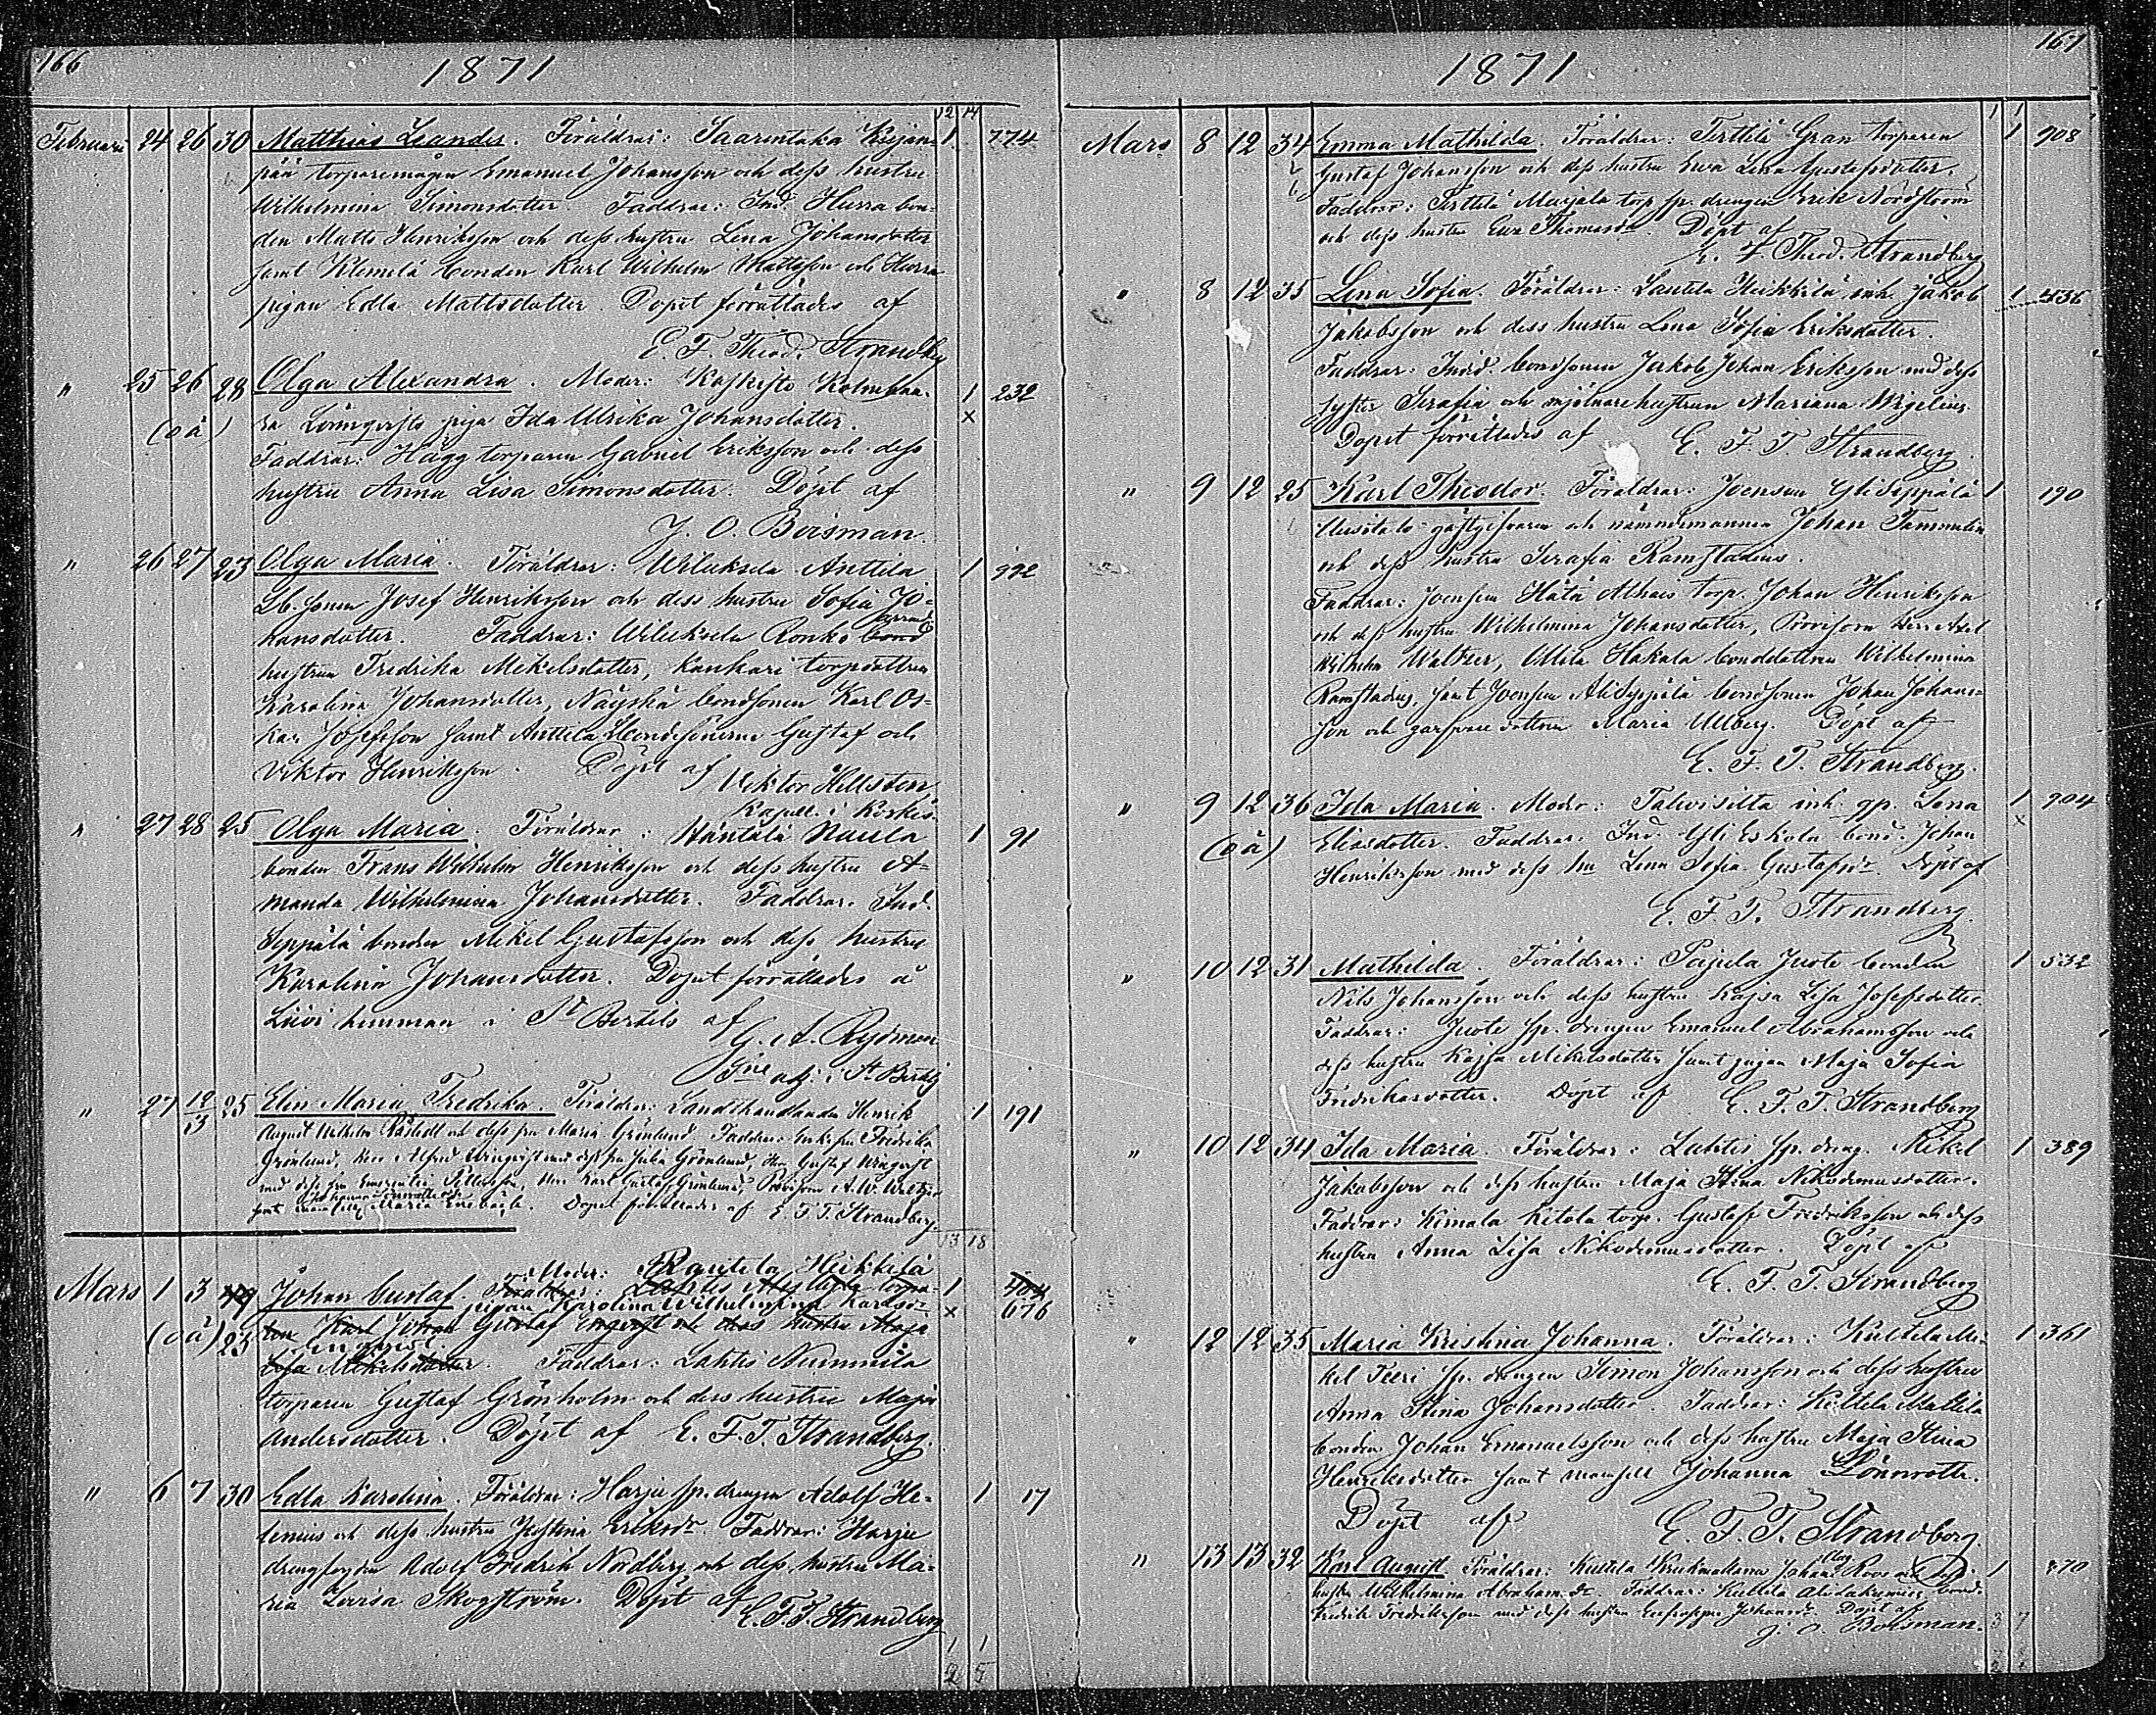 166
1871
12 14
Februari 24 26 30 Matthias Leander. Föräldrar: Saarentaka Kujan- 1 774
pää torparemågen Emanuel Johansson och dess hustru
Wilhelmina Simonsdotter. Faddrar: Ind. Hurra bon-
den Matts Henriksson och dess hustru Lena Johansdotter
samt Klemelä bonden Karl Wilhelm Mattsson och Hurra
pigan Edla Mattsdotter. Dopet förrättades af
E. F. Theod. Strandberg
" 25 26 28 Olga Alexandra. Moder: Koskisto Kolmhaa- 1 232
(oä) ra Lönnqvists piga Ida Ulrika Johansdotter. x
Faddrar: Hägg torparen Gabriel Eriksson och dess
hustru Anna Lisa Simonsdotter. Döpt af
J. O. Boisman.
" 26 27 23 Olga Maria. Föräldrar: Wiluksela Anttila 1 992
Lb. sonen Josef Henriksson och dess hustru Sofia Jo-
hansdotter. Faddrar: Wiluksela Ronko bond
hustrun Fredrika Mikelsdotter, Kankari torpdottren
Karolina Johansdotter, Näyskä bondsonen Karl Os-
kar Josefsson samt Anttila Lbondesönerne Gustaf och
Viktor Henriksson. Döpt af Viktor Hellsten
Kapell. i Koskis.
" 27 28 25 Olga Maria. Föräldrar: Häntälä Naula 1 91
bonden Frans Wilhelm Henriksson och dess hustru A-
manda Wilhelmina Johansdotter. Faddrar: Ind.
Seppälä bonden Mikel Gustafsson och dess hustru
Karolina Johansdotter. Dopet förrättades å
Liivi hemman i St Bertils af
G. A. Rydman
adj. i St Bertils
" 27 12/3 25 Elin Maria Fredrika. Föräldrar: Landthandlanden Henrik 1 191
August Wilhelm och dess fru Maria Grönlund. Faddrar: fru Fredrika
Grönlund, Herr Alfred Winqvist med dess fru Julia Grönlund, Herr Gustaf Winqvist
med dess fru Emerentia Pettersson, Herr Karl Gustaf Grönlund, Provisorn A. W. Waltzer
Johanna Lönnroth och
samt Maria Enebäck. Dopet förrättades af E. F. T. Strandberg.
13 18
Moder: Rautela Heikkilä
Mars 1 3 49 Johan Gustaf. Föräldrar: Lahtis torpa- 1 404
pigan Karolina Wilhelmina Karlsdr x 676
(oä) 23 ren Karl Johan Gustaf Engqvist och dess hustru Maja
Engqvist.
Lisa Mikelsdotter. Faddrar: Lahtis Nummila
torparen Gustaf Grönholm och dess hustru Maja
Andersdotter. Döpt af E. F. T. Strandberg.
" 6 7 30 Edla Karolina. Föräldrar: Harju sp. drengen Adolf He- 1 17
lenius och dess hustru Justina Eriksdr. Faddrar: Harju
drengfogden Adolf Fredrik Nordberg och dess hustru Ma-
ria Lovisa Skogström. Döpt af
E. F. T. Strandberg
1 1
2 5
167
1871
1 1
Mars 8 12 34 Emma Mathilda. Föräldrar: Terttilä Gran torparen 1 908
Gustaf Johansson och dess hustru Eva Lena Gustafsdotter.
Faddrar: Terttilä Maijala torp sp. drengen Erik Nordström
och dess hustru Eva Thomasdr. Döpt af
E. F. Theod. Strandberg
" 8 12 35 Lina Sofia. Föräldrar: Lautela Heikkilä inh. Jakob 1 436
Jakobsson och dess hustru Lena Sofia Eriksdotter.
Faddrar: bondsonen Jakob Johan Eriksson med dess
syster Serafia och mjölnarehustrun Mariana Wigelius.
Dopet förrättades af E. F. T. Strandberg
" 9 12 25 Karl Theodor. Föräldrar: Joensuu Yliseppälä 1 190
Uusitalo gästgifvaren och nämndemannen Johan Tammelin
och dess hustru Serafia Ramstadius.
Faddrar: Joensuu Hätä Alhais torp. Johan Henriksson
och dess hustru Wilhelmina Johansdotter, Provisorn Herr Axel
Wilhelm Waltzer, Ollila Hakala bonddottren Wilhelmina
Ramstadius, samt Joensuu Aliseppälä bondsonen Johan Johans-
son och garfvaredottren Maria Ullberg. Döpt af
E. F. T. Strandberg.
" 9 12 36 Ida Maria. Moder: Talvisilta inh. qp. Lena 1 904
(oä) Eliasdotter. Faddrar: Ind. Yli Eskola bond. Johan x
Henriksson med dess hu Lena Sofia Gustafsdr. Döpt af
E. F. T. Strandberg.
" 10 12 31 Mathilda. Föräldrar: Pajula Juote bonden 1 532
Nils Johansson och dess hustru Kajsa Lisa Josefsdotter.
Faddrar: Juote sp. drengen Emanuel Abrahamsson och
dess hustru Kajsa Mikelsdotter samt pigan Maja Sofia
Fredriksdotter. Döpt af E. F. T. Strandberg
" 10 12 34 Ida Maria. Föräldrar: Lahtis sp. dreng. Mikel 1 389
Jakobsson och dess hustru Maja Stina Nikodemusdotter.
Faddrar: Kimala Kitola torp. Gustaf Fredriksson och dess
hustru Anna Lisa Nikodemusdotter. Döpt af
E. F. T. Strandberg
" 12 12 35 Maria Kristina Johanna. Föräldrar: Kuttila Mi- 1 361
kel Teeri sp. drengen Simon Johansson och dess hustru
Anna Stina Johansdotter. Faddrar: Kuttila Mattila
bonden Johan Emanuelsson och dess hustru Maja Stina
Henriksdotter samt mamsell Johanna Lönnroth.
Döpt af E. F. T. Strandberg.
" 13 13 32 Karl August. Föräldrar: Kuttila Krukmakaren Johan Roos och dess 1 370
hustru Wilhelmina Abrahamsdr. Faddrar: Kuttila bond.
Fredrik Fredriksson med dess hustru Eufrosyne Johansdr. Döpt af
J. O. Boisman. 3 7